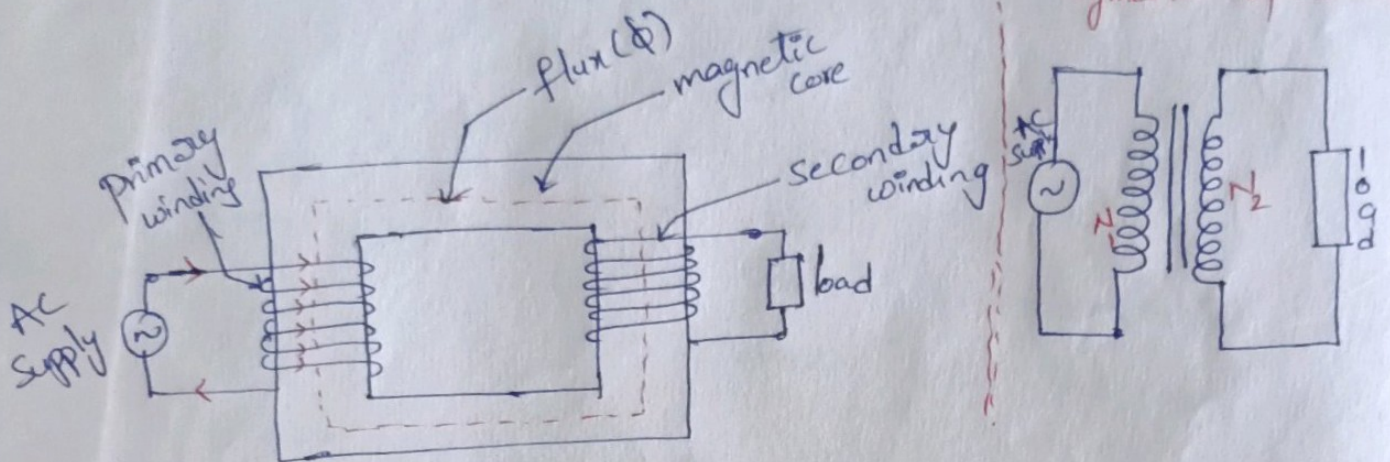 flux (ϕ)
magnetic
core
Primary
winding
secondary
winding
AC
Supply
load
AC
Supply
N₁
N₂
load